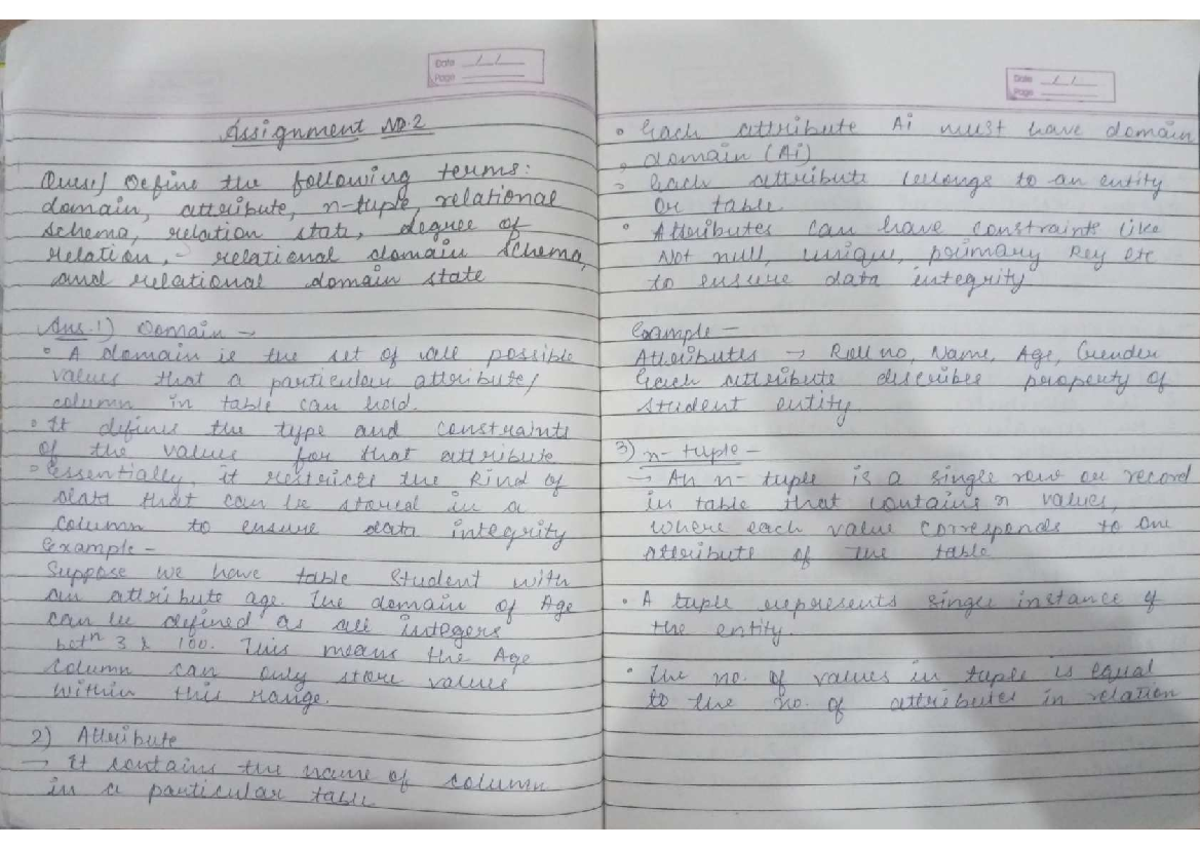 Date
Page
Assignment No.2
Ques1) Define the following terms:
domain, attribute, n-tuple, relational
schema, relation state, degree of
relation, - relational domain schema,
and relational domain state
Ans.1) Domain →
• A domain is the set of all possible
values that a particular attribute/
column in table can hold.
• It defines the type and constraints
of the values for that attribute
• Essentially, it restricts the kind of
data that can be stored in a
column to ensure data integrity
Example -
Suppose we have table Student with
an attribute age. The domain of Age
can be defined as all integers
betn 3 & 100. This means the Age
column can only store values
within this range.
2) Attribute
→ It contains the name of column
in a particular table
Date
Page
• Each attribute Ai must have domain
, domain (Ai)
→ Each attribute belongs to an entity
or table.
• Attributes can have constraints like
Not null, unique, primary key etc
to ensure data integrity
Example -
Attributes → Roll no, Name, Age, Gender
Each attribute describes property of
student entity
3) n-tuple -
→ An n-tuple is a single row or record
in table that contains n values,
where each value corresponds to one
attribute of the table
• A tuple represents single instance of
the entity.
• The no. of values in tuple is equal
to the no. of attributes in relation